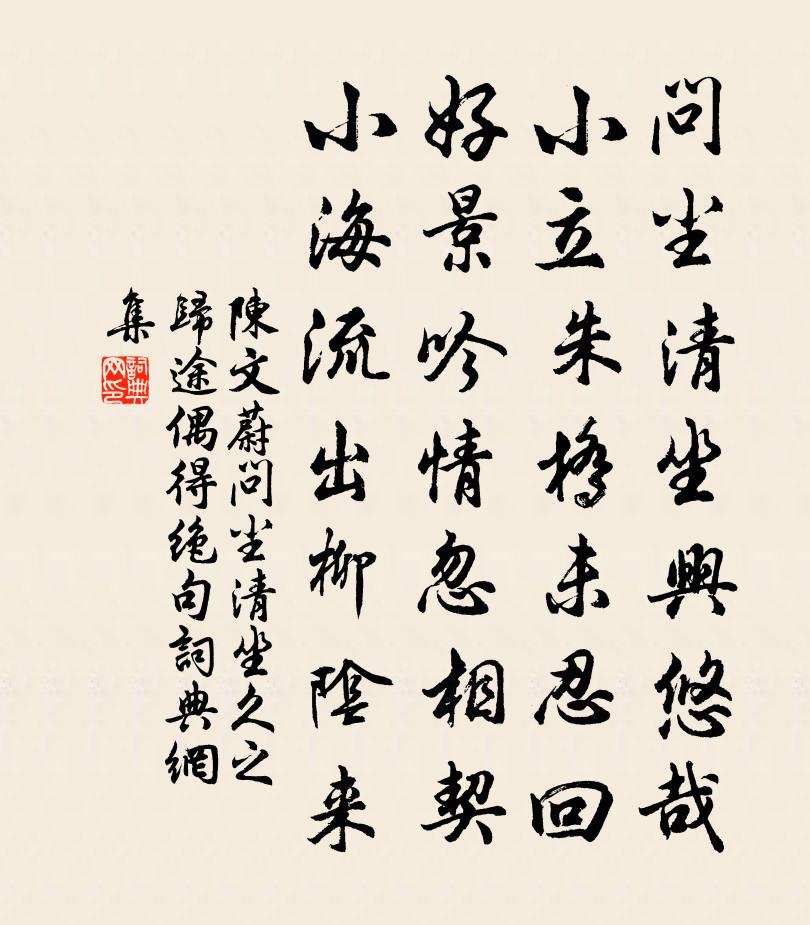 問尘清坐興悠哉
小立朱橋未忍回
好景吟情忽相契
小海流出柳陰来
陳文蔚問尘清坐久之
歸途偶得絶句詞典網
集
詞典网印